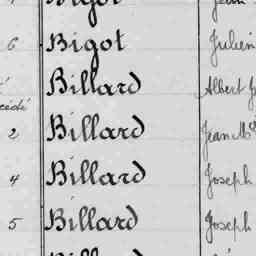 6 Bigot Julien
Billard Albert
2 Billard Jean
4 Billard Joseph
5 Billard Joseph